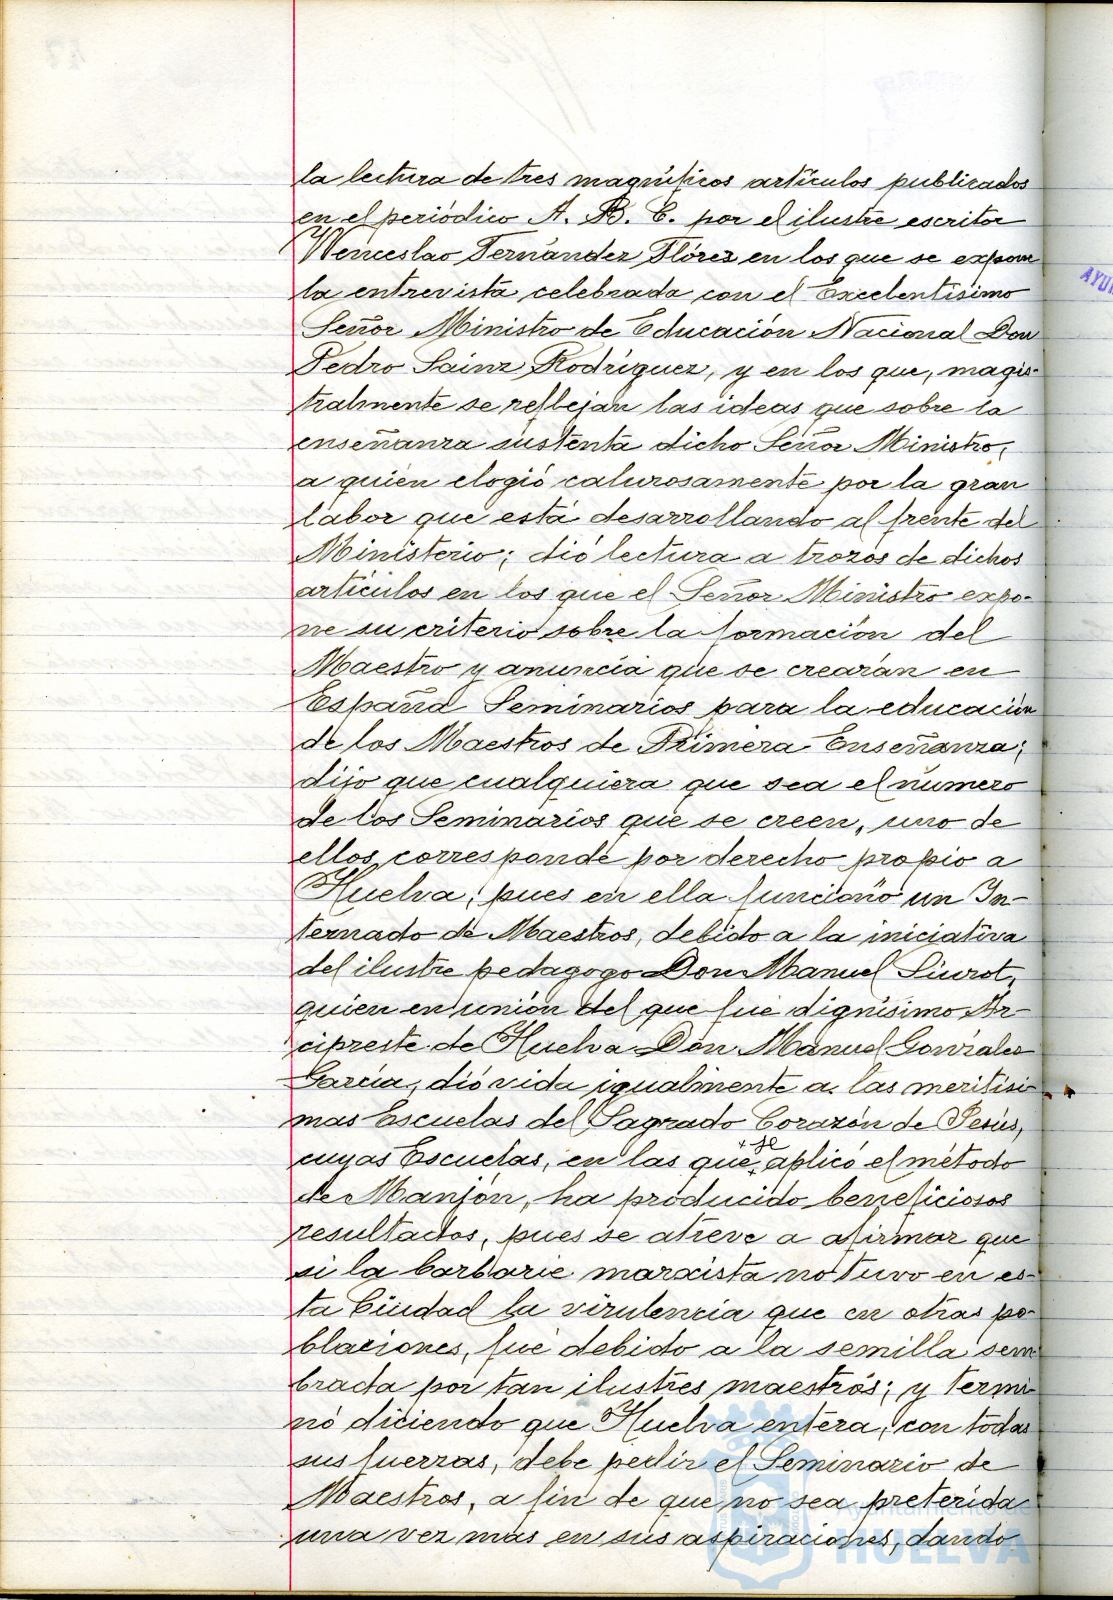 la lectura de tres magníficos artículos publicados
en el periódico A. B. C. por el ilustre escritor
Wenceslao Fernández Flórez en los que se expone
la entrevista celebrada con el Excelentísimo
Señor Ministro de Educación Nacional Don
Pedro Sainz Rodríguez, y en los que, magis-
tralmente se reflejan las ideas que sobre la
enseñanza sustenta dicho Señor Ministro,
a quien elogió calurosamente por la gran
labor que está desarrollando al frente del
Ministerio; dió lectura a trozos de dichos
artículos en los que el Señor Ministro expo-
ne su criterio sobre la formación del
Maestro y anuncia que se crearán en
España Seminarios para la educación
de los Maestros de Primera Enseñanza;
dijo que cualquiera que sea el número
de los Seminarios que se creen, uno de
ellos corresponde por derecho propio a
Huelva, pues en ella funcionó un In-
ternado de Maestros, debido a la iniciativa
del ilustre pedagogo Don Manuel Siurot,
quien en unión del que fué dignísimo Ar-
cipreste de Huelva Don Manuel González
García, dió vida igualmente a las meritísi-
mas Escuelas del Sagrado Corazón de Jesús,
cuyas Escuelas, en las que se aplicó el método
de Manjón, ha producido beneficiosos
resultados, pues se atreve a afirmar que
si la barbarie marxista no tuvo en es-
ta Ciudad la virulencia que en otras po-
blaciones, fué debido a la semilla sem-
brada por tan ilustres maestros; y termi-
nó diciendo que Huelva entera, con todas
sus fuerzas, debe pedir el Seminario de
Maestros, a fin de que no sea preterida
una vez más en sus aspiraciones, dando
AYU
Ayuntamiento de
HUELVA